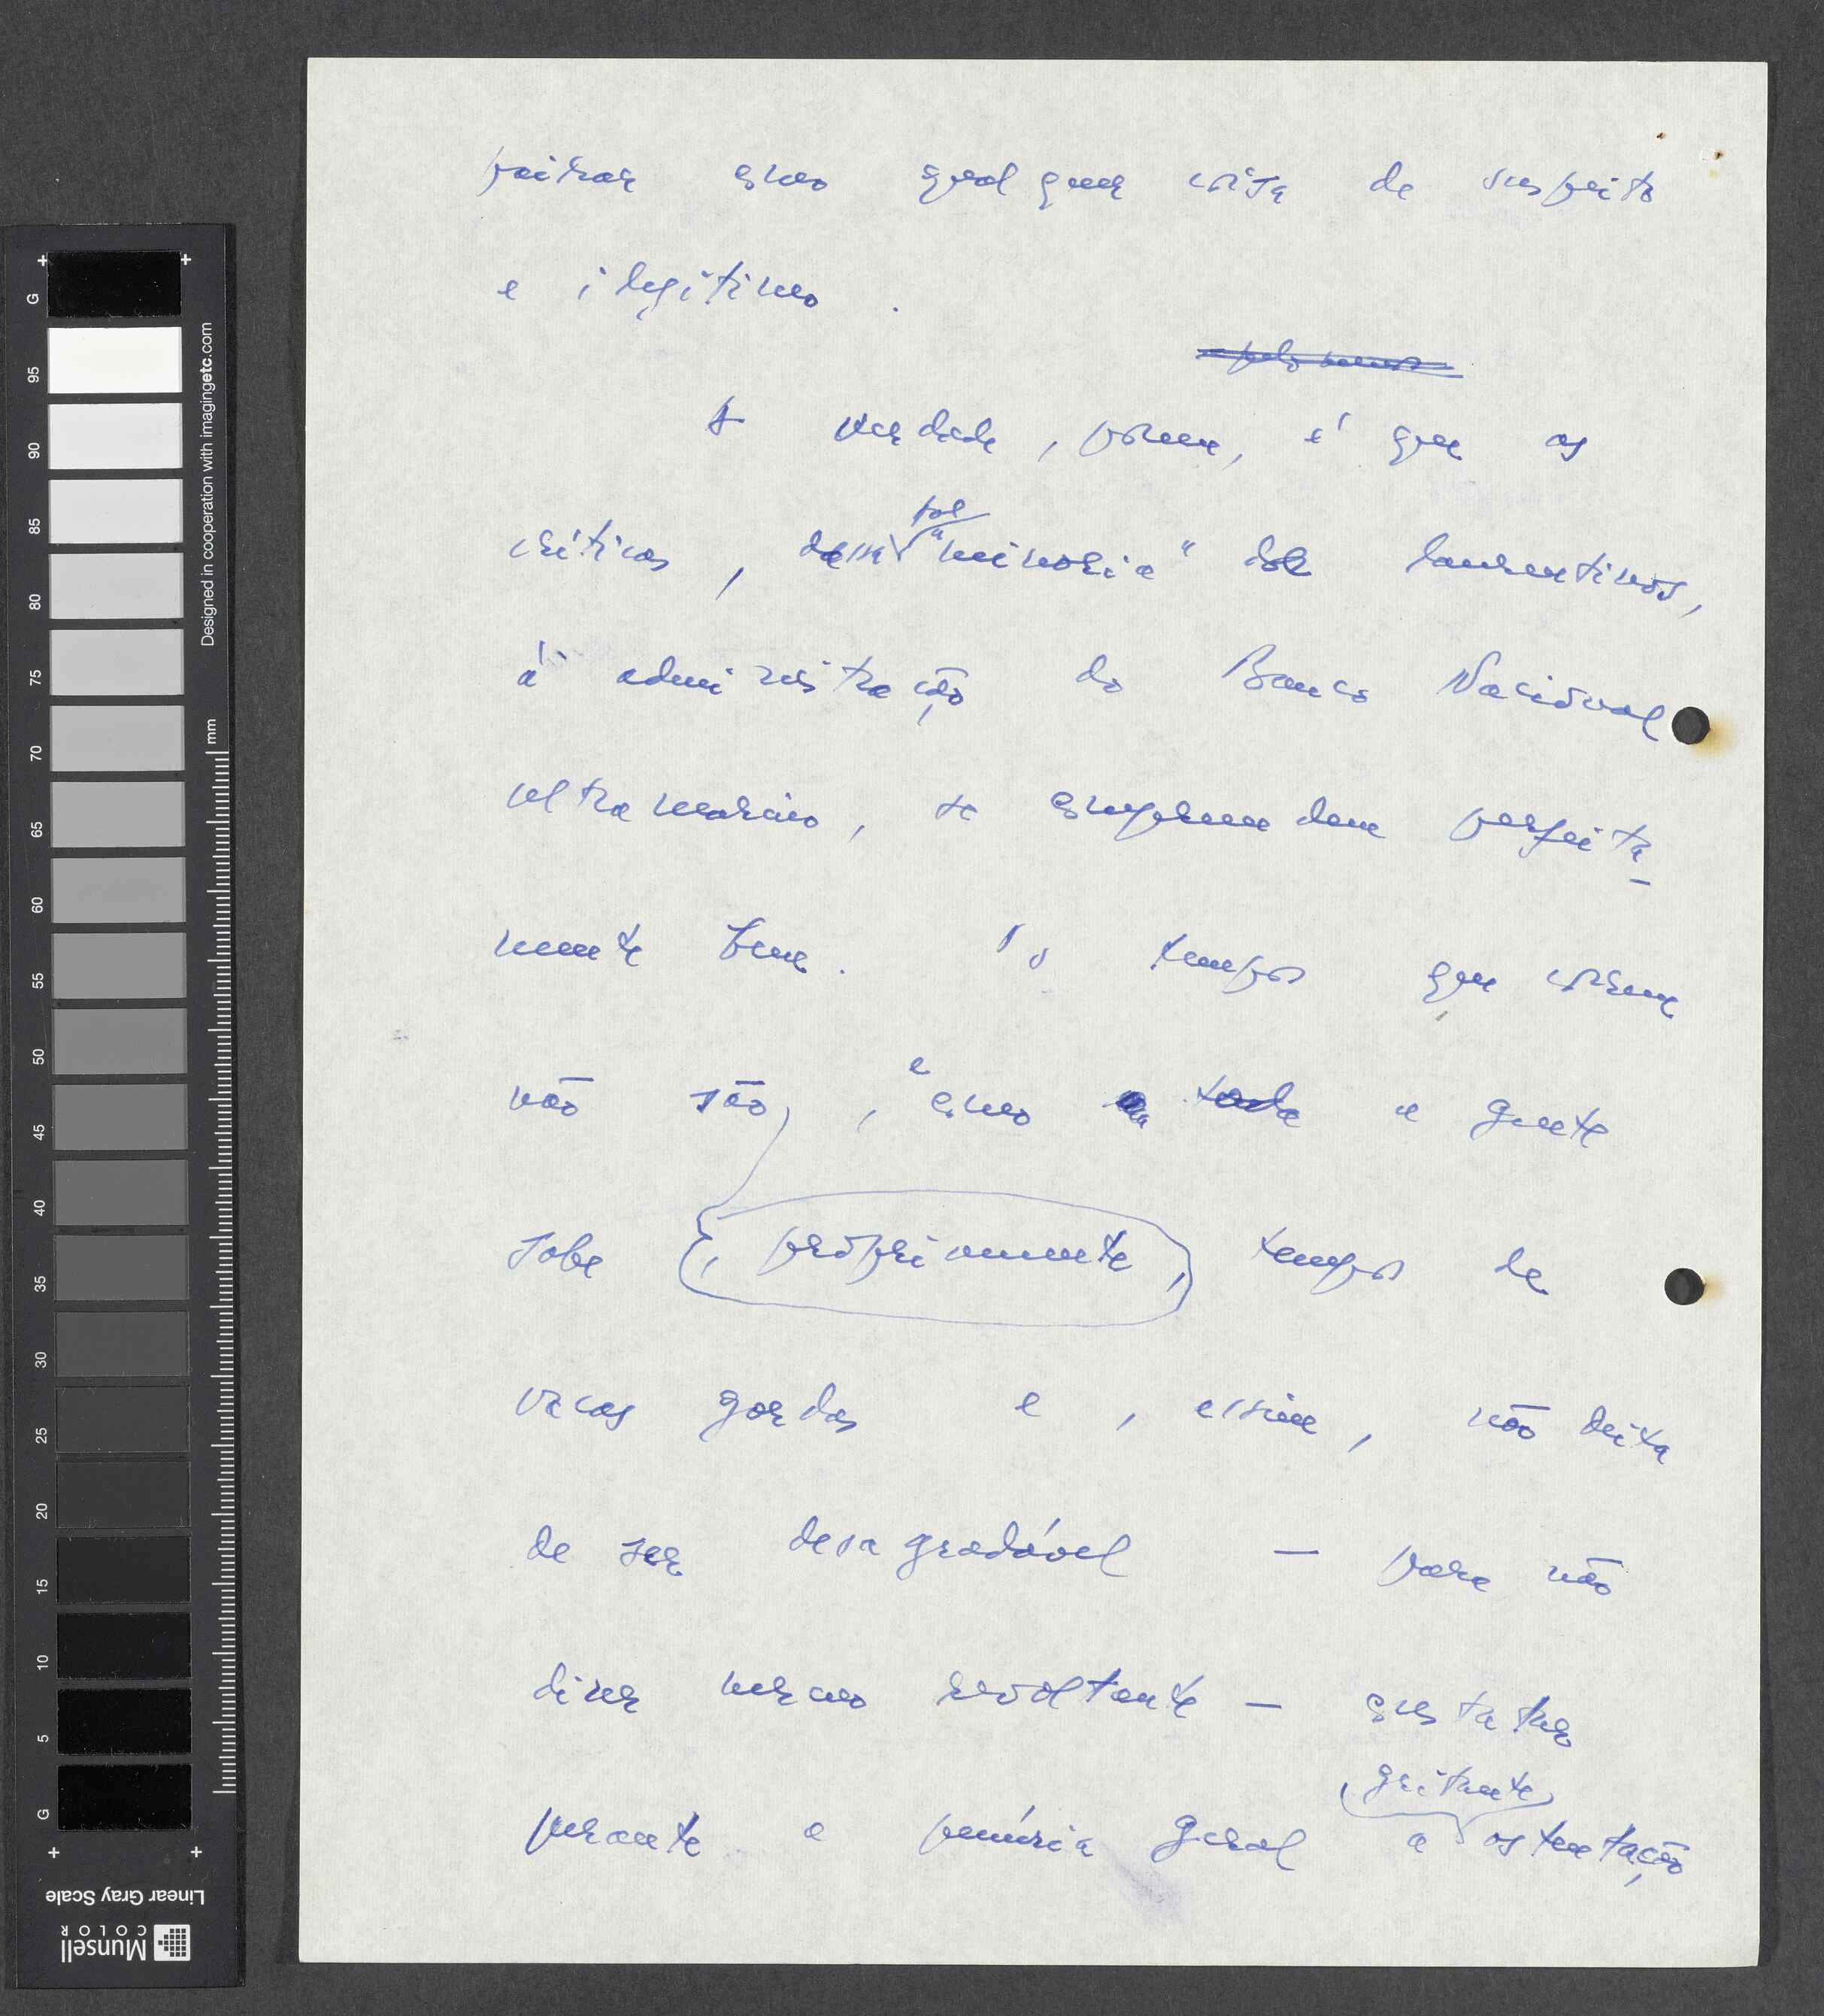 pairar como qualquer coisa de suspeito
e ilegítimo.
A verdade, porém, é que as
críticas, dessa tal "minoria" de laurentinos,
à administração do Banco Nacional
Ultramarino, se compreendem perfeita-
mente bem. Os tempos que correm
não são, e como toda a gente
sabe (, propriamente,) tempos de
vacas gordas e, assim, não deixa
de ser desagradável — para não
dizer mesmo revoltante — constatar
gritante
perante a penúria geral a ostentação
Designed in cooperation with imagingetc.com
mm
G 95 90 85 80 75 70 65 60 55 50 45 40 35 30 25 20 15 10 5 G
Linear Gray Scale
Munsell
COLOR